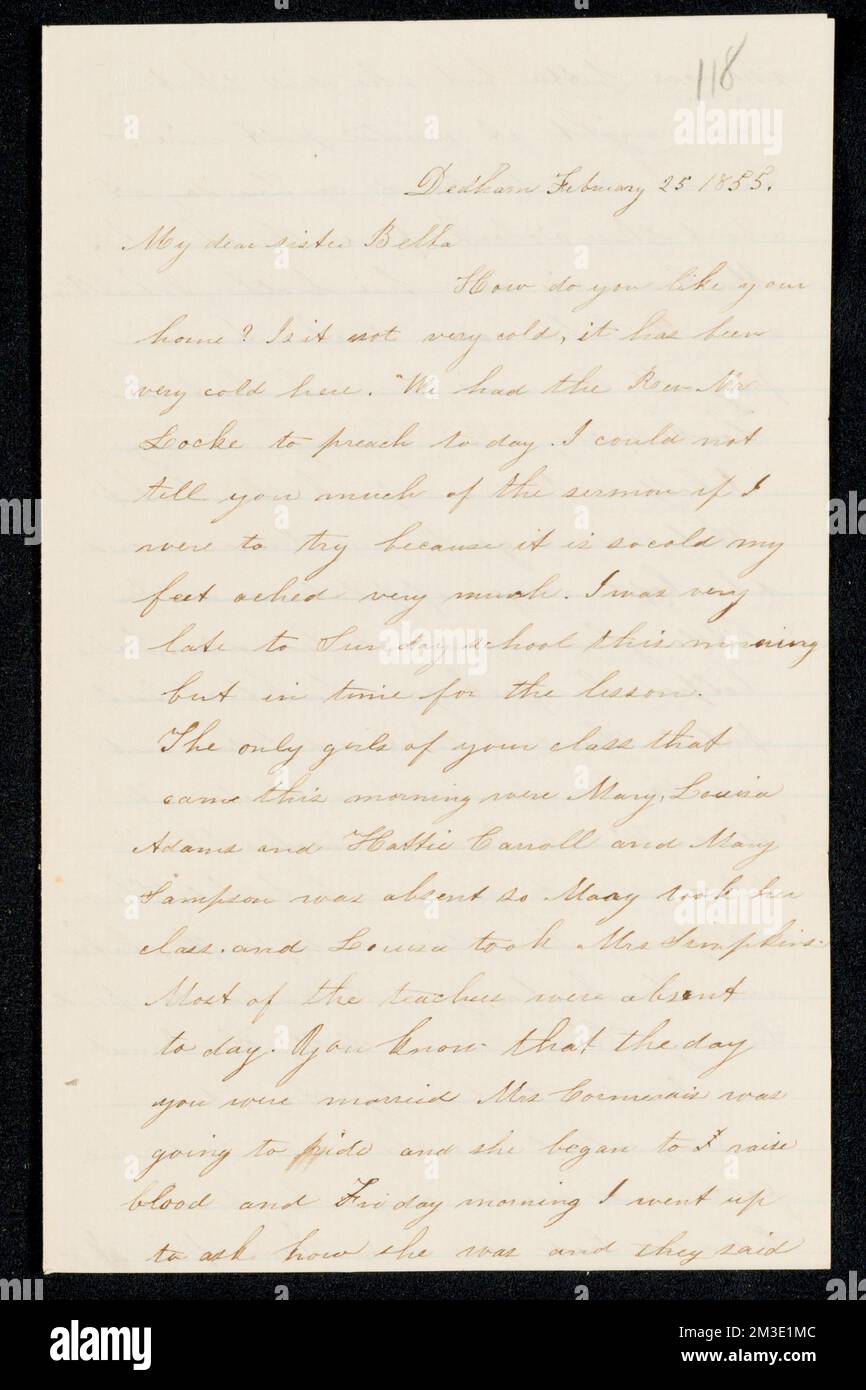 118
Dedham February 25 1855.
My dear sister Bella
How do you like your
home? Is it not very cold, it has been
very cold here. "We had the Rev Mr
Locke to preach to day. I could not
till you much of the sermon if I
were to try because it is so cold my
feet ached very much. I was very
late to Sunday school this morning
but in time for the lesson.
The only girls of your class that
came this morning were Mary, Louisa
Adams and Hattie Carroll and Mary
Sampson was absent so Maay took her
class. and Louisa took Mrs Simpkins.
Most of the teachers were absent
to day. You know that the day
you were married Mrs Cormerais was
going to ride and she began to raise
blood and Friday morning I went up
to ask how she was and they said
alamy
Image ID: 2M3E1MC
www.alamy.com